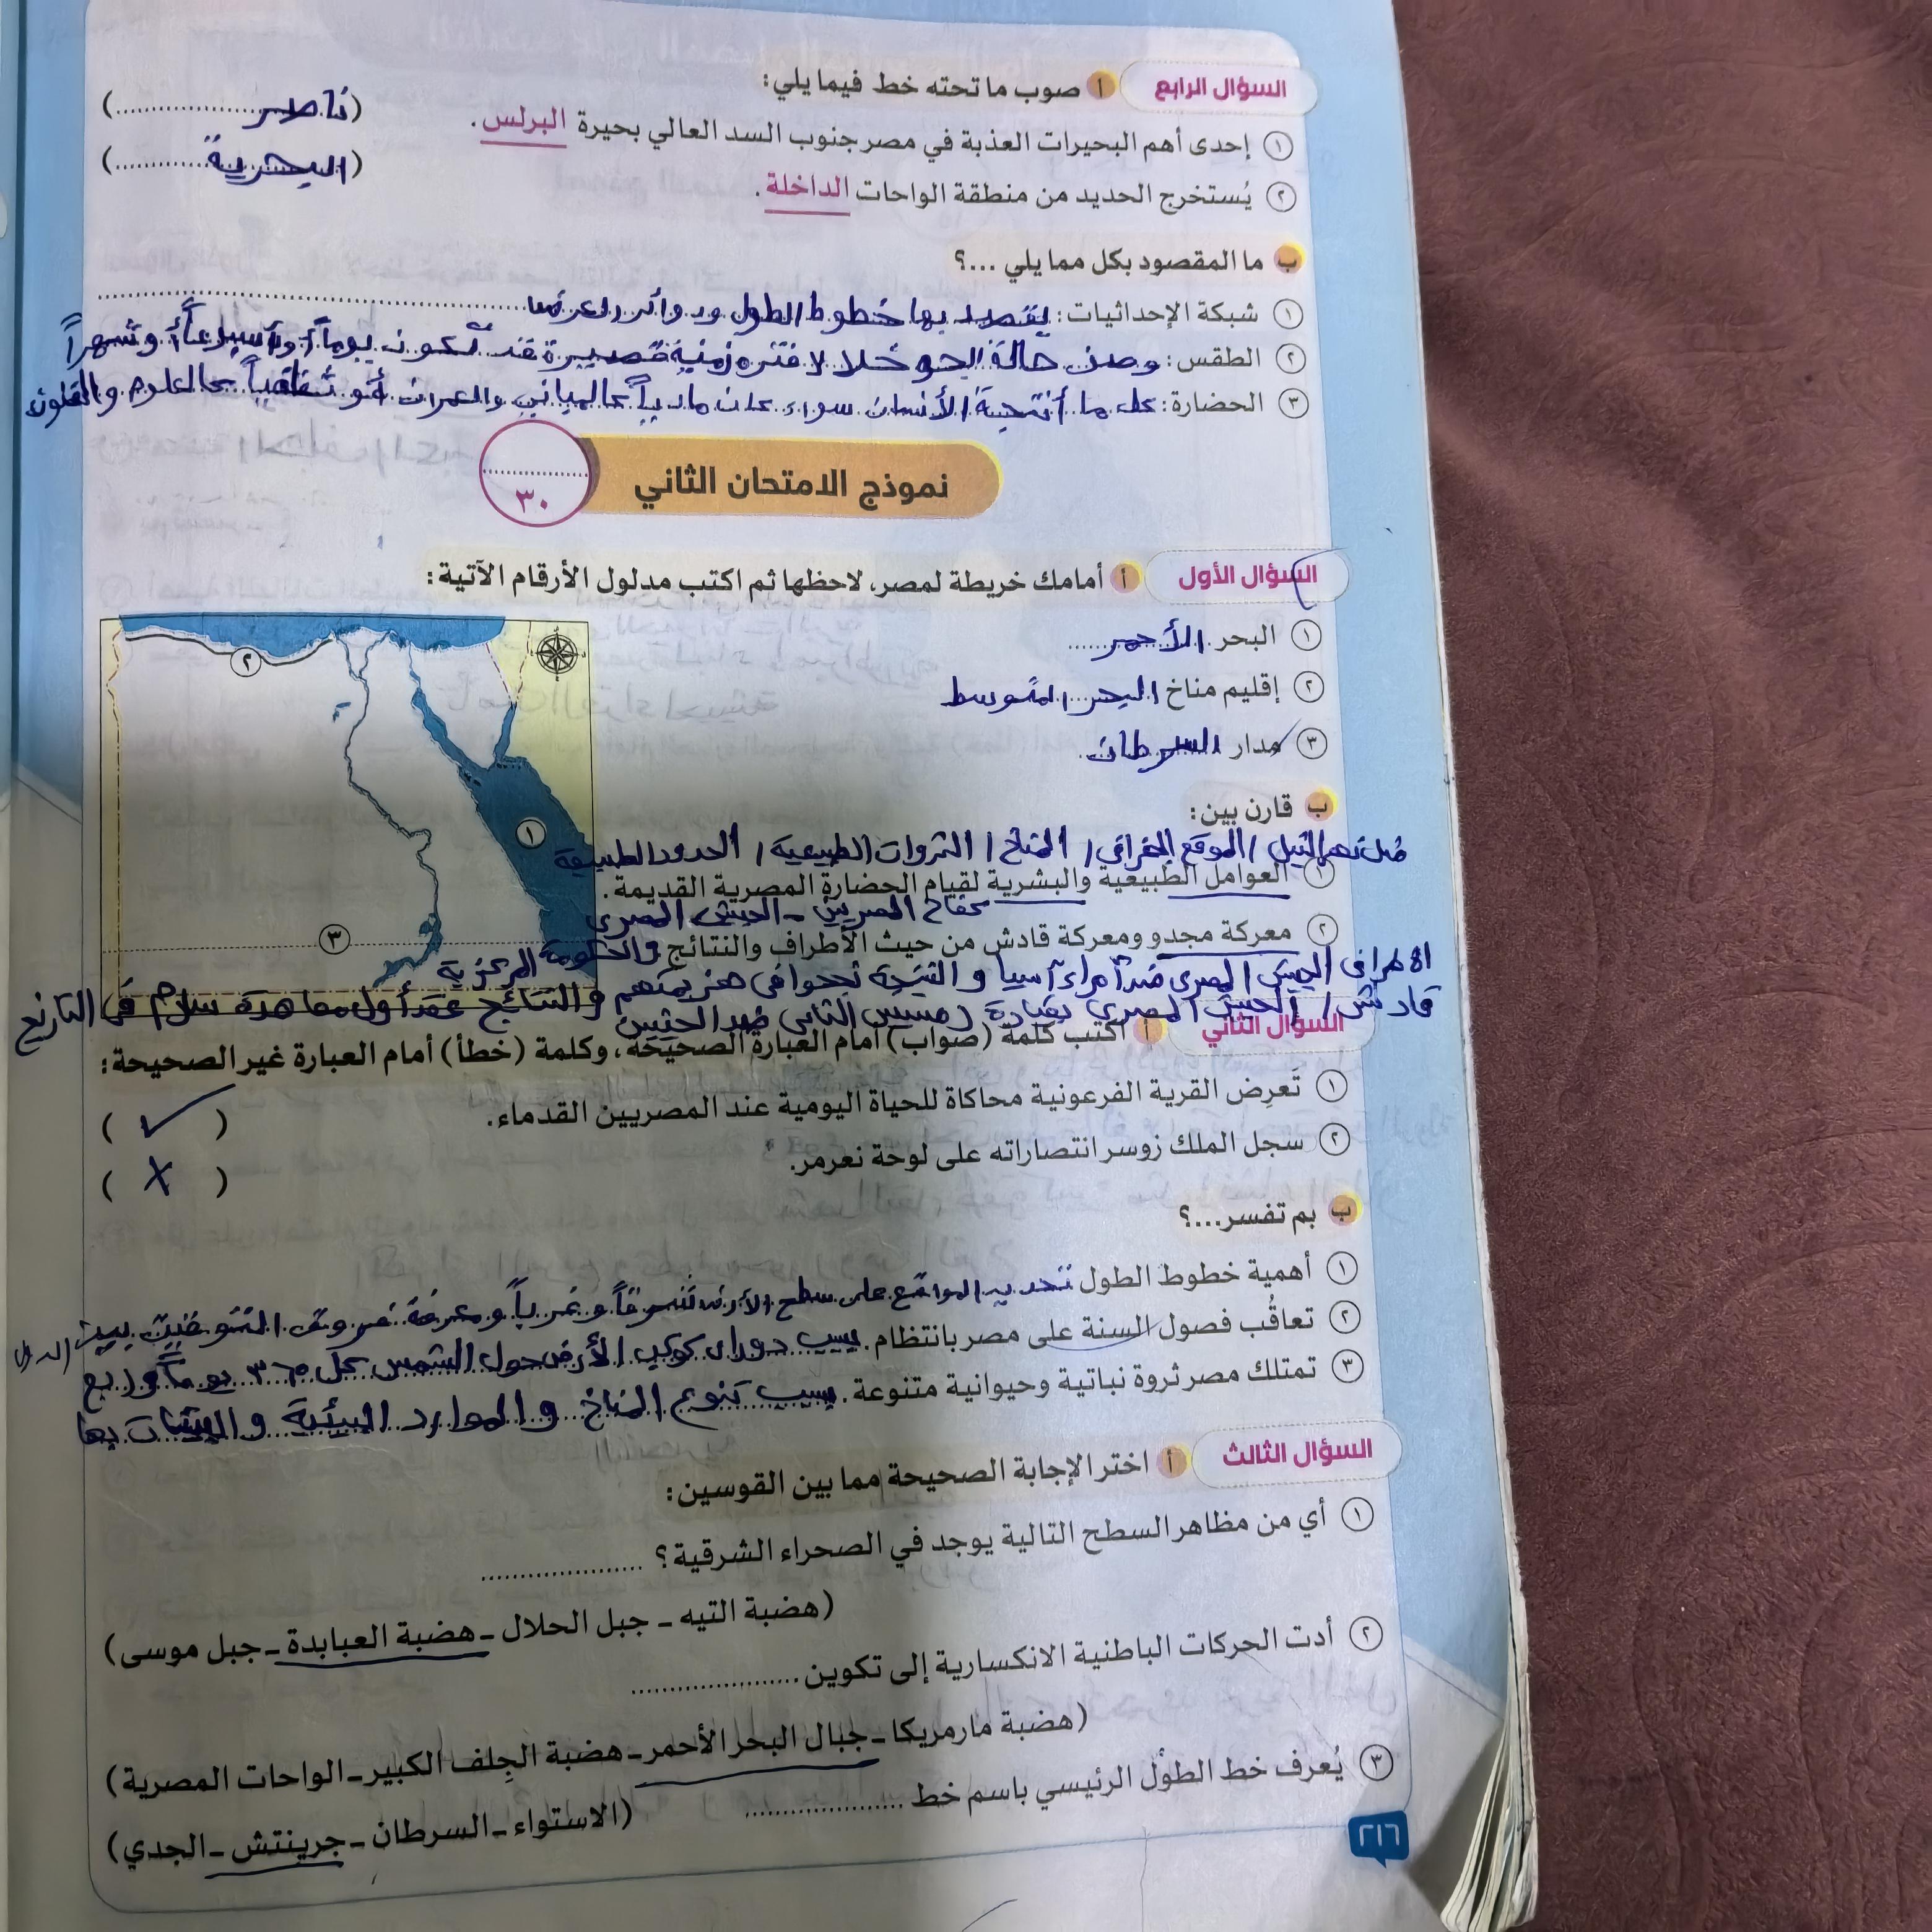 السؤال الرابع أ صوب ما تحته خط فيما يلي:
١ إحدى أهم البحيرات العذبة في مصر جنوب السد العالي بحيرة البرلس. (ناصر)
٢ يُستخرج الحديد من منطقة الواحات الداخلة. (البحرية)
ب ما المقصود بكل مما يلي ...؟
١ شبكة الإحداثيات: يقصد بها خطوط الطول ودوائر العرض
٢ الطقس: وصف حالة الجو خلال فتره زمنية قصيرة قد تكون يوماً أو أسبوعاً أو شهراً
٣ الحضارة: كل ما أنتجية الأنسان سواء كان مادياً كالمباني والعمران أو ثقافياً كالعلوم والفنون
نموذج الامتحان الثاني
٣٠
السؤال الأول أ أمامك خريطة لمصر، لاحظها ثم اكتب مدلول الأرقام الآتية:
١ البحر الأحمر
٢ إقليم مناخ البحر المتوسط
٣ مدار السرطان
٢
١
٣
ب قارن بين:
مثل نهر النيل / الموقع الجغرافي / المناخ / الثروات الطبيعية / الحدود الطبيعية
١ العوامل الطبيعية والبشرية لقيام الحضارة المصرية القديمة.
كفاح المصريين - الجيش المصرى
٢ معركة مجدو ومعركة قادش من حيث الأطراف والنتائج والحكومة المركزية
الاطراف الجيش المصرى ضد أمراء آسيا و النتيجة نجحوا فى هزيمتهم
قادش / الجيش المصرى بقيادة رمسيس الثانى ضد الحثيين والنتائج عقد أول معاهدة سلام فى التاريخ
السؤال الثاني أ اكتب كلمة (صواب) أمام العبارة الصحيحة، وكلمة (خطأ) أمام العبارة غير الصحيحة:
١ تَعرِض القرية الفرعونية محاكاة للحياة اليومية عند المصريين القدماء. (✓)
٢ سجل الملك زوسر انتصاراته على لوحة نعرمر. (X)
ب بم تفسر...؟
١ أهمية خطوط الطول تحديد المواقع على سطح الأرض شرقاً و غرباً و معرفة فروق التوقيت بين الدول
٢ تعاقُب فصول السنة على مصر بانتظام. بسبب دوران كوكب الأرض حول الشمس كل ٣٦٥ يوماً وربع
٣ تمتلك مصر ثروة نباتية وحيوانية متنوعة. بسبب تنوع المناخ و الموارد البيئية و بها
السؤال الثالث أ اختر الإجابة الصحيحة مما بين القوسين:
١ أي من مظاهر السطح التالية يوجد في الصحراء الشرقية؟
(هضبة التيه - جبل الحلال - هضبة العبابدة - جبل موسى)
٢ أدت الحركات الباطنية الانكسارية إلى تكوين
(هضبة مارمريكا - جبال البحر الأحمر - هضبة الجِلف الكبير - الواحات المصرية)
٣ يُعرف خط الطول الرئيسي باسم خط
(الاستواء - السرطان - جرينتش - الجدي)
٢١٦